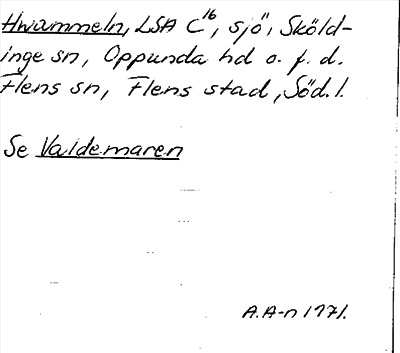 Hwammeln, LSA C16, sjö, Sköld-
inge sn, Oppunda hd o. f. d.
Flens sn, Flens stad, Söd.l.
Se Valdemaren
A.A-n 1971.